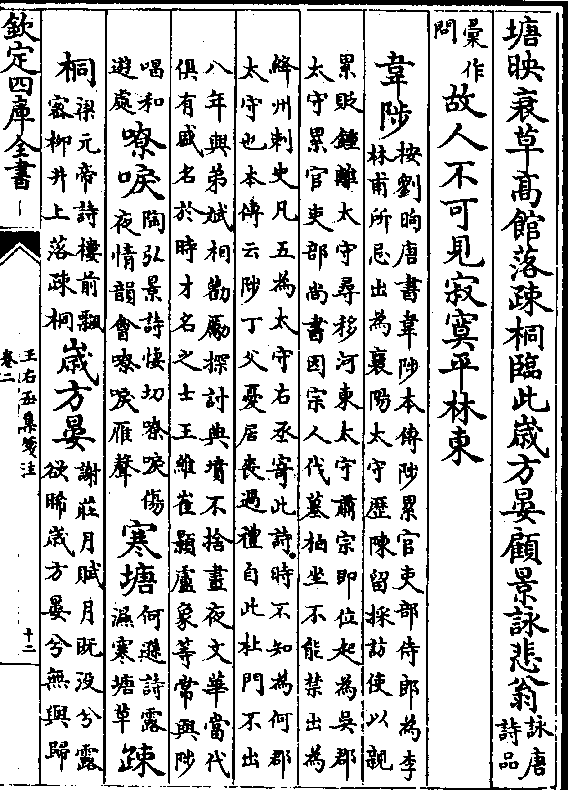 塘映衰草高館落疎桐臨此歲方晏顧景詠悲翁詠唐詩品
彙作問故人不可見寂寞平林東
韋陟按劉昫唐書韋陟本傳陟累官吏部侍郎為李
林甫所忌出為襄陽太守歴陳留採訪使以親
累貶鍾離太守尋移河東太守肅宗即位起為吳郡
太守累官吏部尚書因宗人伐墓柏坐不能禁出為
絳州刺史凡五為太守右丞寄此詩時不知為何郡
太守也本傳云陟丁父憂居喪過禮自此杜門不出
八年與弟斌相勸勵探討典墳不捨晝夜文華當代
俱有盛名於時才名之士王維崔顥盧象等常與陟
唱和遊處嘹唳陶弘景詩悽切嘹唳傷夜情韻會嘹唳雁聲寒塘何遜詩露濕寒塘草疎
桐梁元帝詩樓前飄密柳井上落疎桐歲方晏謝莊月賦月既没兮露欲晞歲方晏兮無與歸
欽定四庫全書
王右丞集箋注
卷二
十二